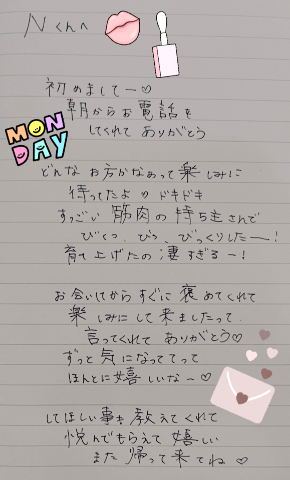 Nくんへ
初めまして〜♡
朝からお電話を
してくれて ありがとう
MON
DAY
どんな お方かなぁって楽しみに
待ってたよ♡ ドキドキ
すっごい 筋肉の持ち主さんで
びくっ、びっ、びっくりしたー!
育て上げたの凄すぎるー!
お会いしてからすぐに 褒めてくれて
楽しみにして来ましたって、
言ってくれて ありがとう♡
ずっと気になってってって
ほんとに嬉しいなー♡
してほしい事も教えてくれて
悦んでもらえて 嬉しい
また 帰って来てね♡